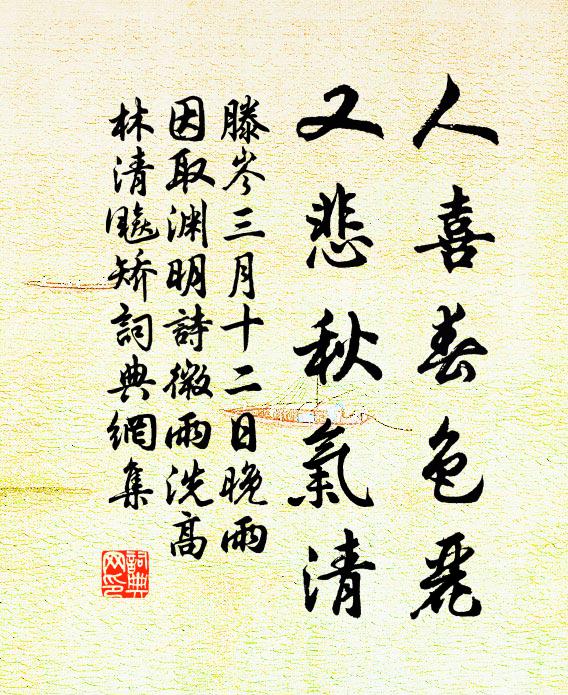 人喜春色麗
又悲秋氣清
滕岑三月十二日晚雨
因取渊明詩微雨洗高
林清飈矫詞典網集
詞典
网印